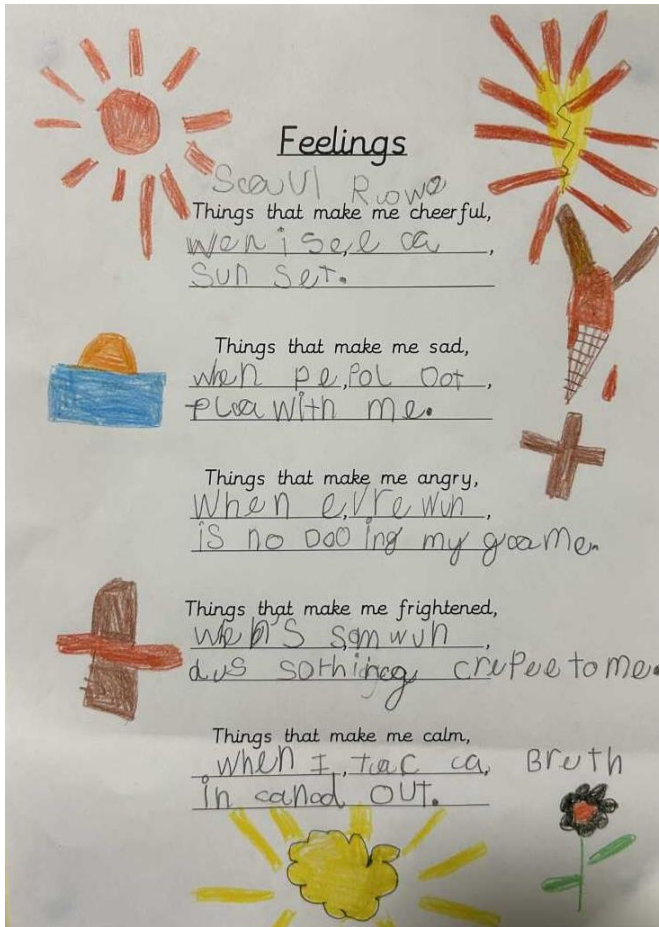 Feelings
Things that make me cheerful,
wen i see a
sun set.
Things that make me sad,
when pepol Dot
plea with me.
Things that make me angry,
When evre wun
is no Doo ing my game.
Things that make me frightened,
when's somwun
dus sothing crepee to me.
Things that make me calm,
when I tac a Breth
in and out.